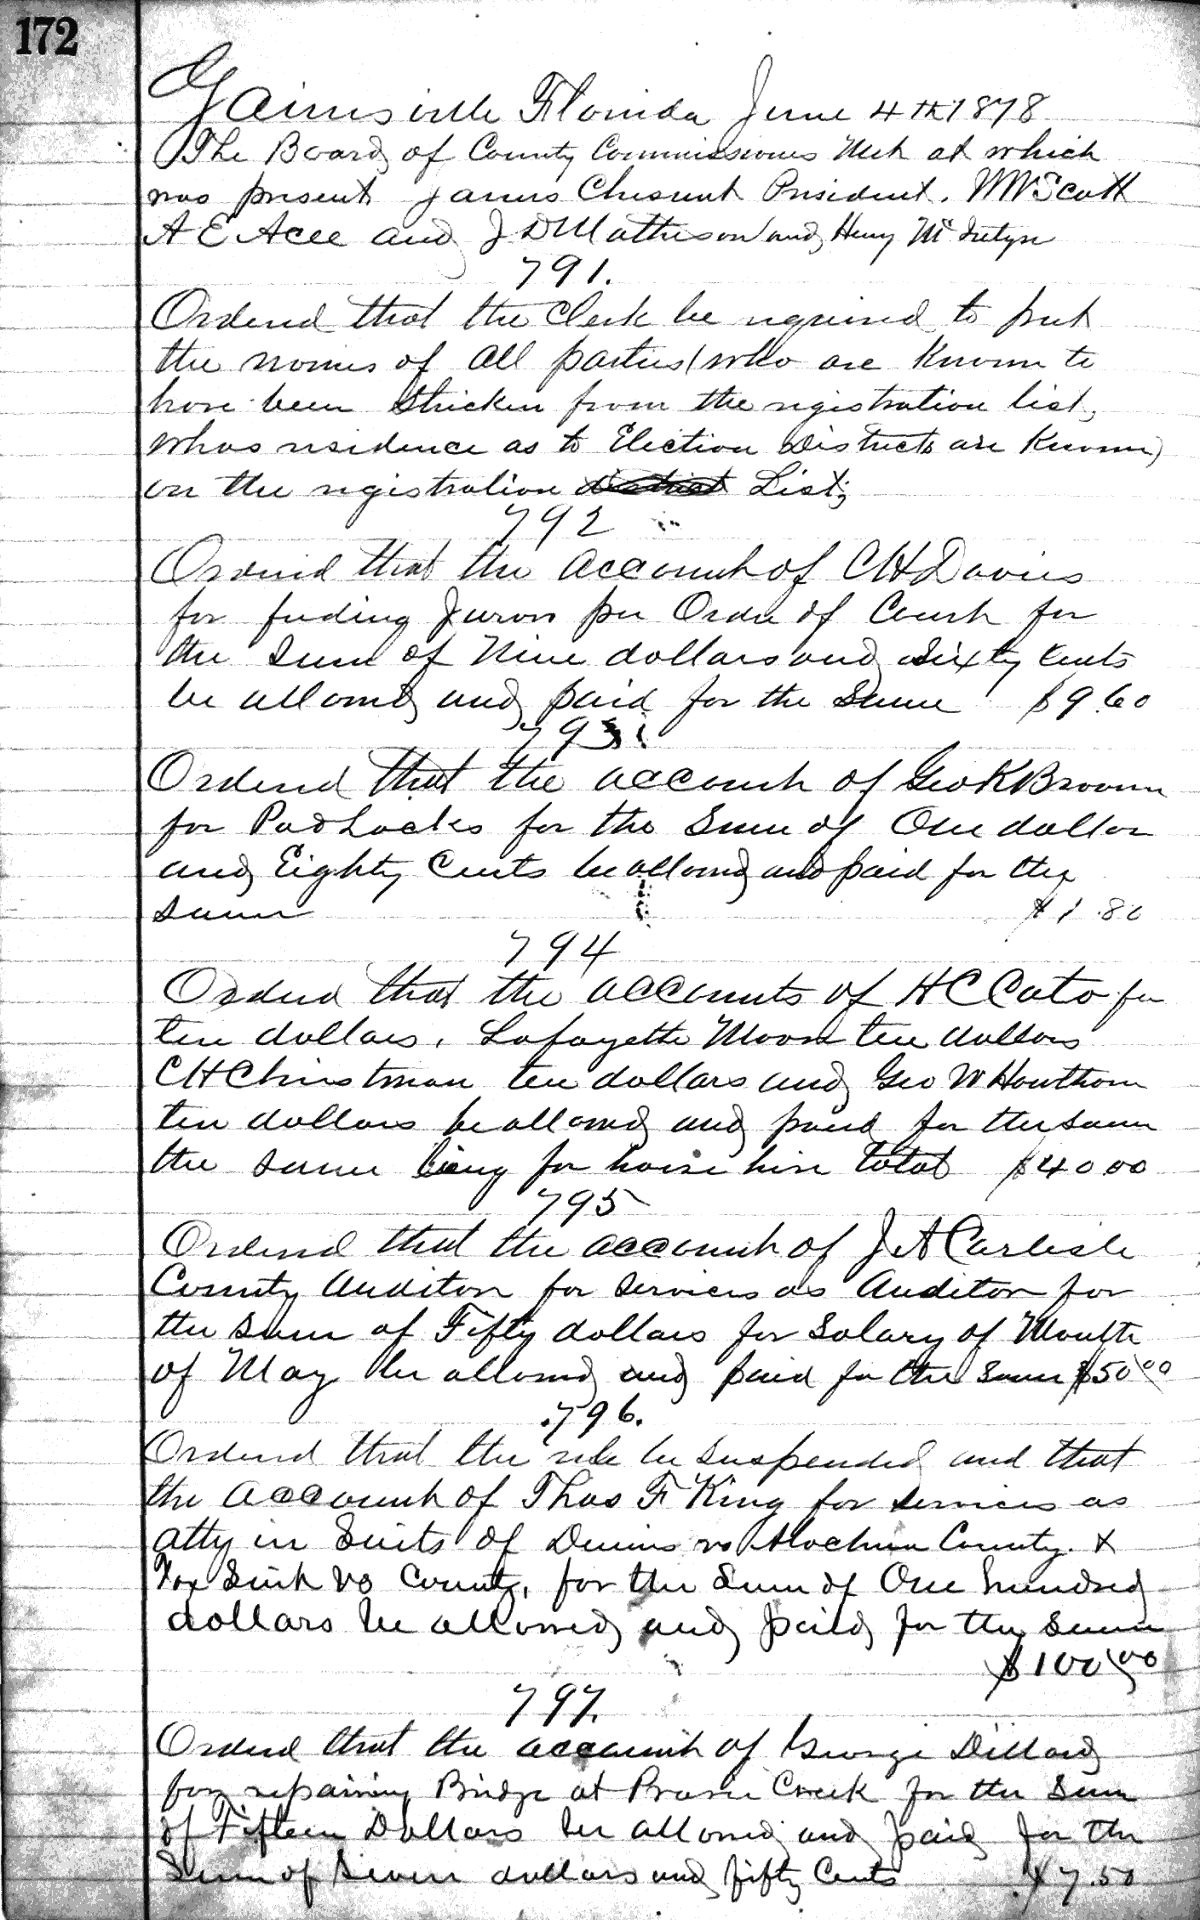 172
Gainesville Florida June 4th 1878
The Board of County Commissioners Met at which
was present James Chesnut President. W W Scott
A E Acee and J D Matheson and Henry McIntyre
791.
Ordered that the Clerk be required to put
the names of all parties (who are Known to
have been Stricken from the registration list,
whos residence as to Election Districts are Known)
on the registration List;
792
Ordered that the account of C H Davis
for feeding Jurors per Order of Court for
the Sum of Nine dollars and Sixty Cents
be allowed and paid for the Same $9.60
793
Ordered that the account of Geo K Broome
for PadLocks for the Sum of One dollar
and Eighty Cents be allowed and paid for the
same $1.80
794
Ordered that the accounts of H C Cato for
ten dollars, Lafayette Moore ten dollars
C H Christman ten dollars and Geo W Hawthorn
ten dollars be allowed and paid for the same
the same being for horse hire total $40 00
795
Ordered that the account of J A Carlisle
County Auditor for services as Auditor for
the sum of Fifty dollars for Salary of Month
of May be allowed and paid for the same $50 00
.796.
Ordered that the rule be suspended and that
the account of Thos F King for services as
atty in Suits of vs Alachua County. &
vs County, for the Sum of One hundred
dollars be allowed and paid for the Same
$100,00
797.
Ordered that the account of George Dillard
for repairing Bridge at Prairie Creek for the Sum
of Fifteen Dollars be allowed and paid for the
Sum of Seven dollars and fifty Cents $7.50